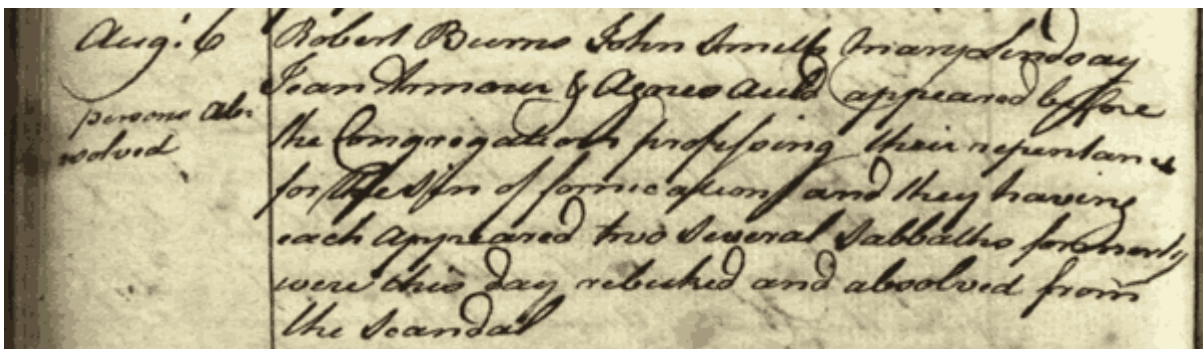 Aug: 6
persons abs
solved
Robert Burns John Smith Mary Lindsay
Jean Armour & Agnes Auld appeared before
the Congregation professing their repentance
for the sin of fornication and they having
each appeared two several Sabbaths formerly
were this day rebuked and absolved from
the scandal